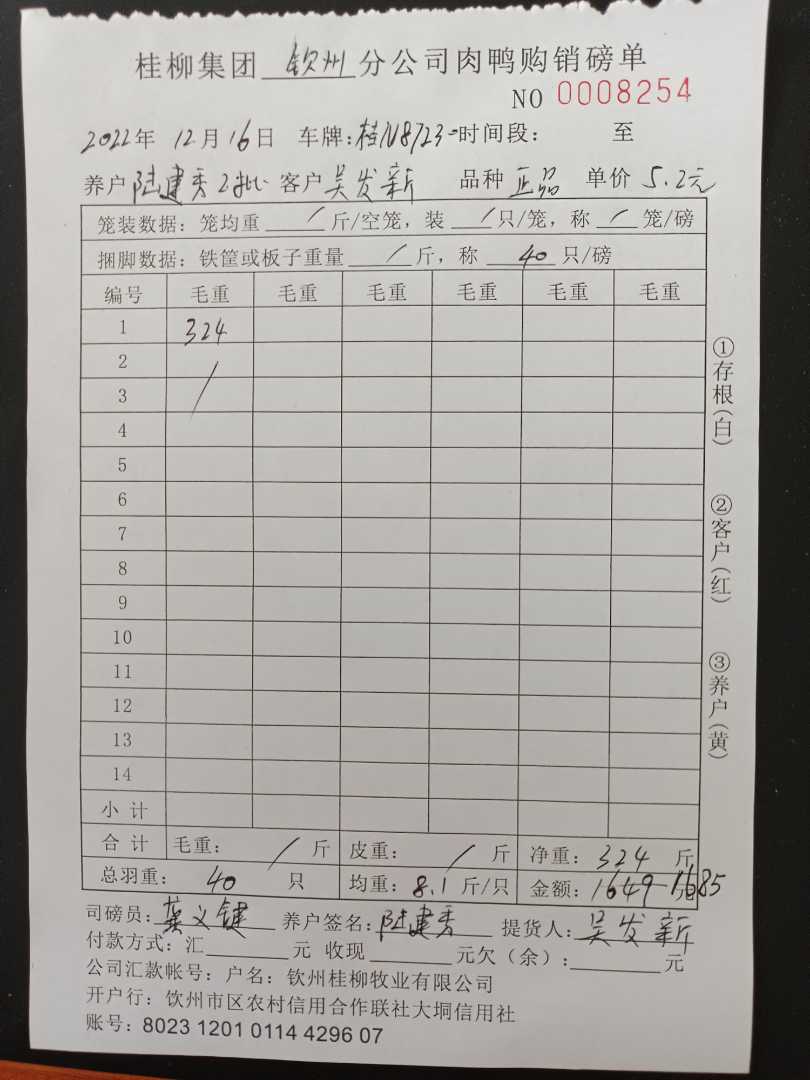 桂柳集团 钦州 分公司肉鸭购销磅单
NO 0008254
2022年 12月16日 车牌:桂N8723 时间段: 至
养户 陆建秀2批 客户 吴发新 品种 正品 单价 5.2元
笼装数据:笼均重 / 斤/空笼,装 / 只/笼,称 / 笼/磅
捆脚数据:铁筐或板子重量 / 斤,称 40 只/磅
编号 毛重 毛重 毛重 毛重 毛重 毛重
1 324
2
3 /
4
5
6
7
8
9
10
11
12
13
14
小 计
合 计 毛重: / 斤 皮重: / 斤 净重: 324 斤
总羽重: 40 只 均重: 8.1 斤/只 金额: 1649 1685
司磅员: 龚义键 养户签名: 陆建秀 提货人: 吴发新
付款方式:汇 元 收现 元欠(余): 元
公司汇款帐号:户名:钦州桂柳牧业有限公司
开户行:钦州市区农村信用合作联社大垌信用社
账号:8023 1201 0114 4296 07
①存根(白) ②客户(红) ③养户(黄)